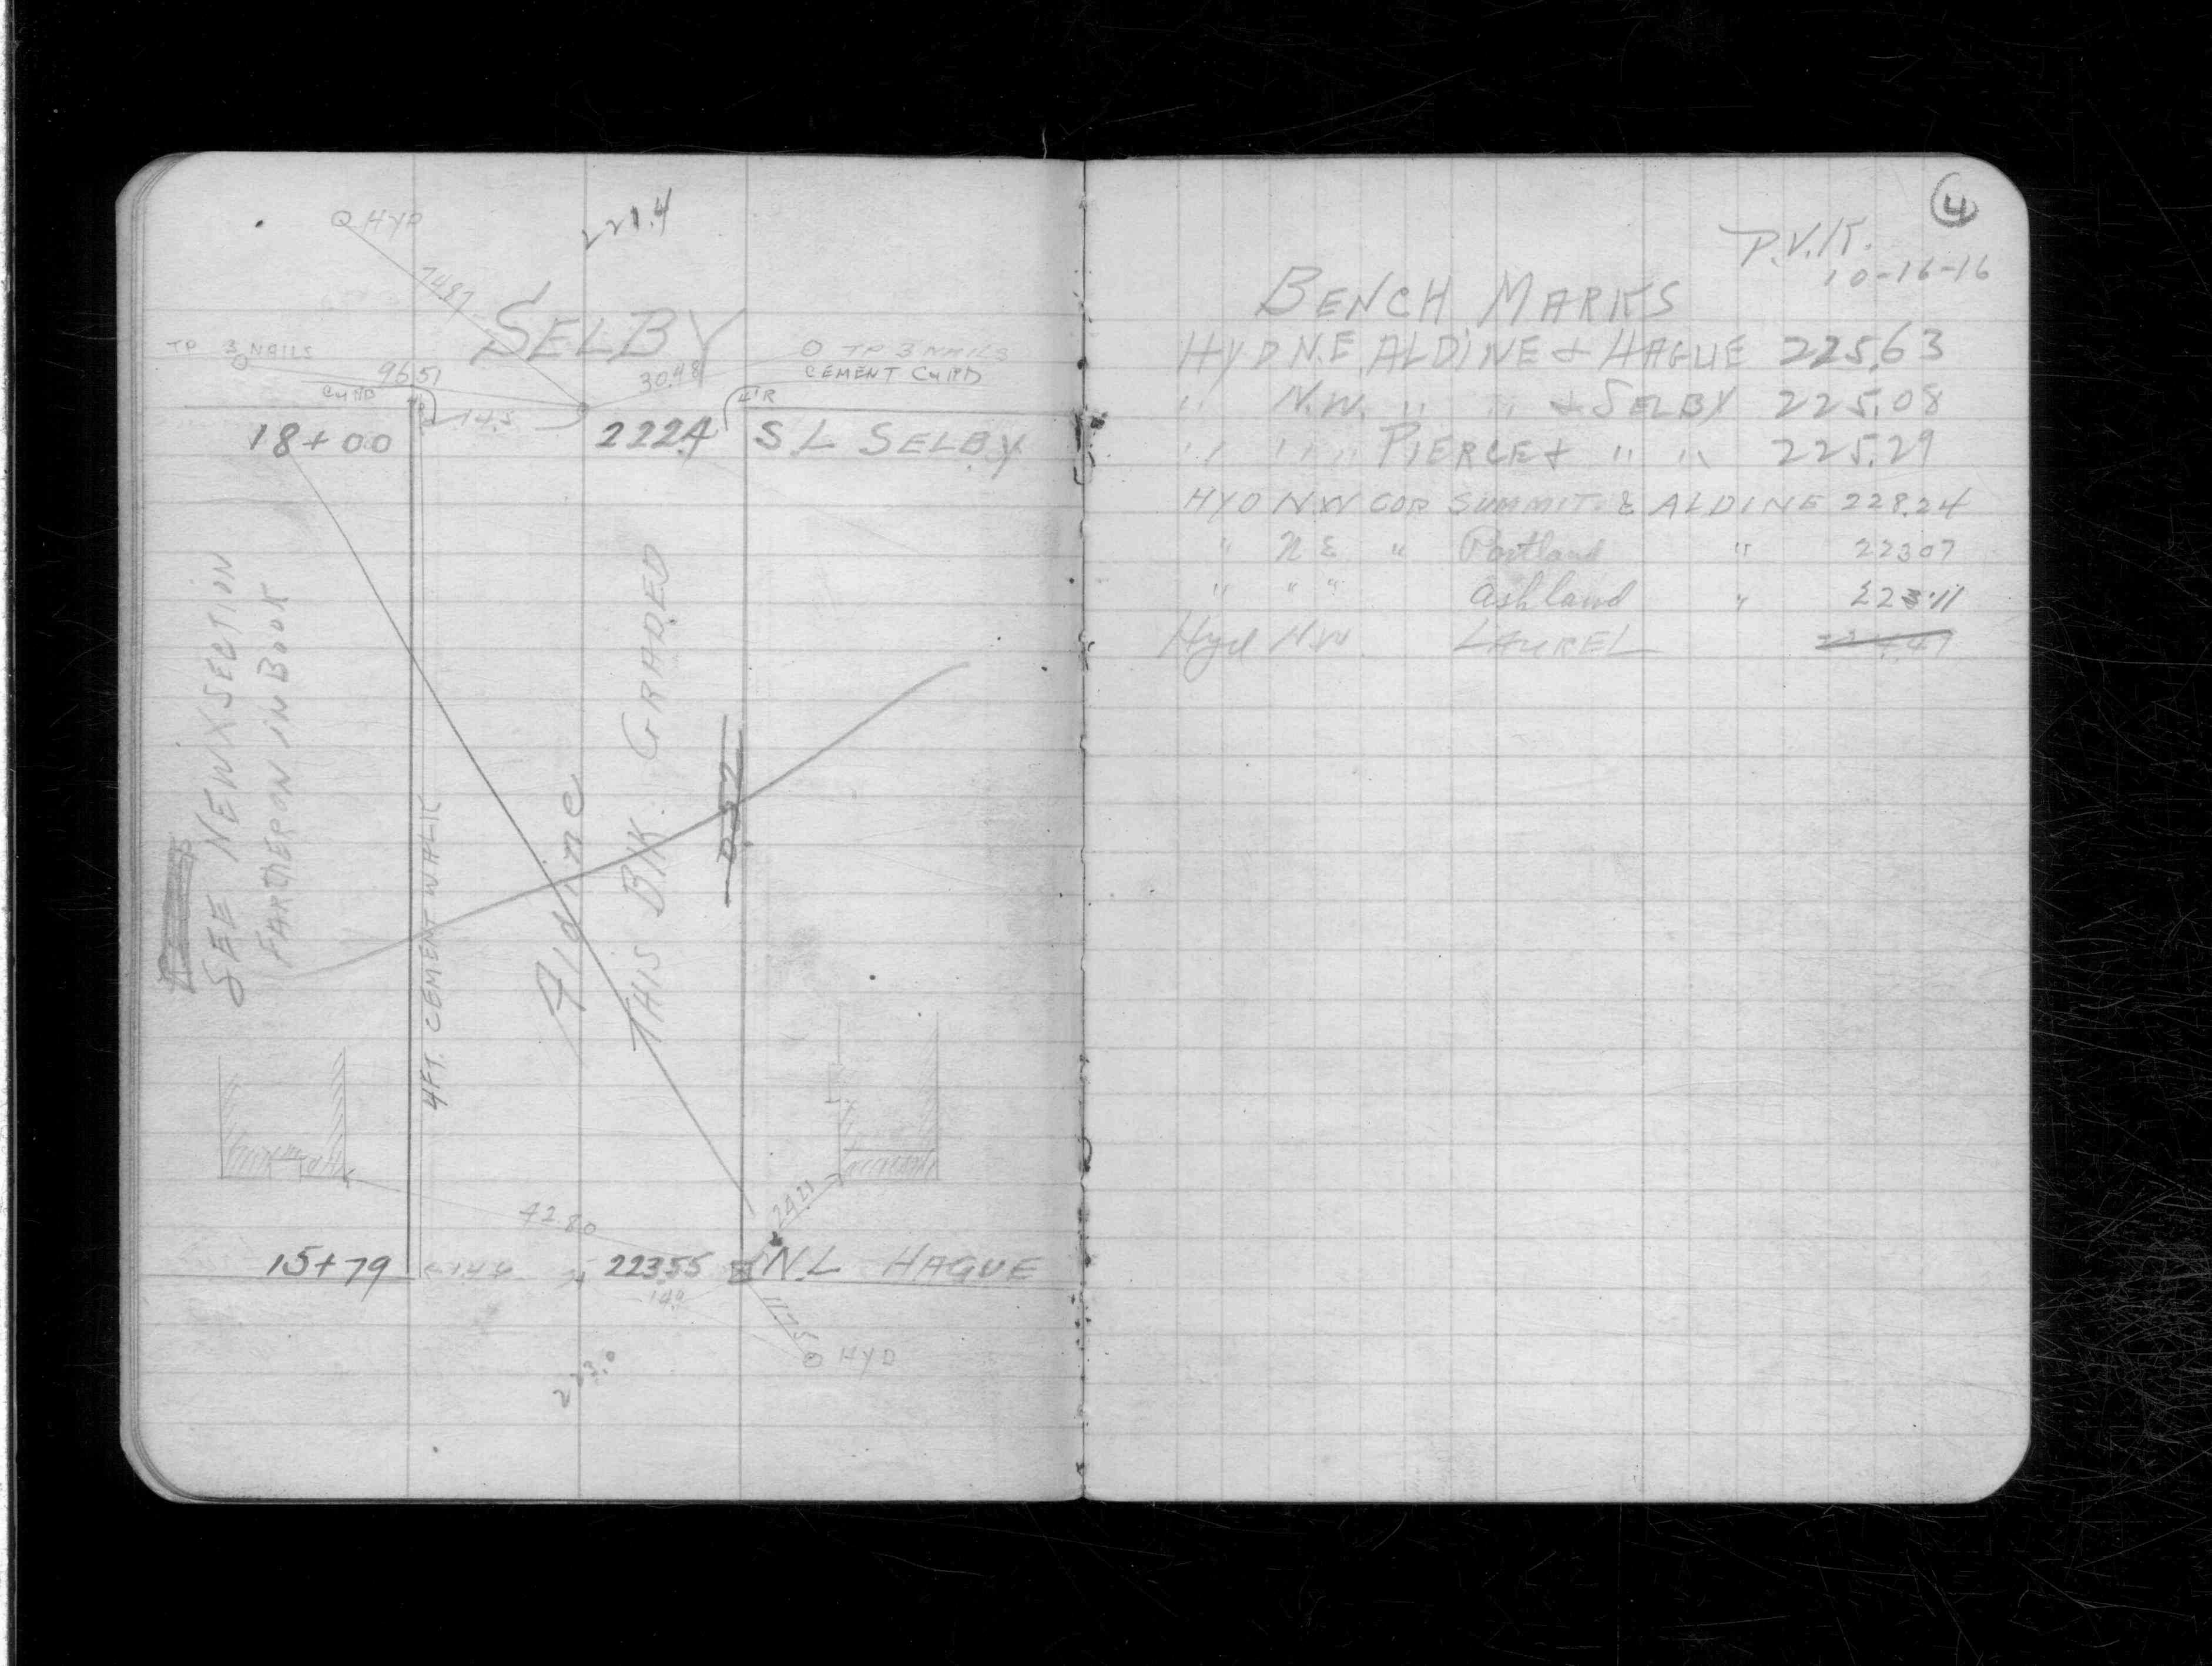 O HYD
221.4
74.87
SELBY
TP 3 NAILS
O TP 3 NAILS
96.51
30.48
CEMENT CURB
CURB
4'R
14.5
18+00
222.4
S L SELBY
SEE NEW X SECTION
FARTHER ON IN BOOK
4 FT. CEMENT WALK
Aldine
THIS BLK. GRADED
24.21
42.80
15+79
14.4
223.55
N.L HAGUE
14.9
11.75
O HYD
223.0
4
P.V.K.
10-16-16
BENCH MARKS
HYD N.E. ALDINE & HAGUE 225.63
" N.W. " " & SELBY 225.08
" " " PIERCE & " " 225.29
HYD N.W COR SUMMIT & ALDINE 228.24
" N E " Portland " 223 07
" " " Ashland " 223.11
Hyd N.W. LAUREL